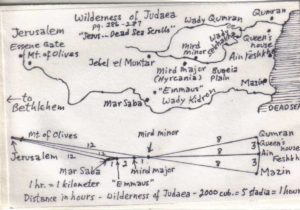 Wilderness of Judaea
pg. 286-287
"Jesus... Dead Sea Scrolls"
Wady Qumran
Qumran
Jerusalem
Essene Gate
Mt. of Olives
Queen's
house
Ain Feshkha
Wady
mird
minor
Jebel el Muntar
mird major
(Hyrcania)
Buqeia
Plain
"Emmaus"
Mazin
Mar Saba
Wady Kidron
DEADSEA
to
Bethlehem
Mt of Olives
mird minor
Qumran
Queen's
house
Ain
Feshkha
Mazin
8
8
8
3
3
12
12
Jerusalem
Mar Saba
1
2
"Emmaus"
mird major
1 hr. = 1 kilometer
Distance in hours - Wilderness of Judaea - 2000 cub. = 5 stadia = 1 hour